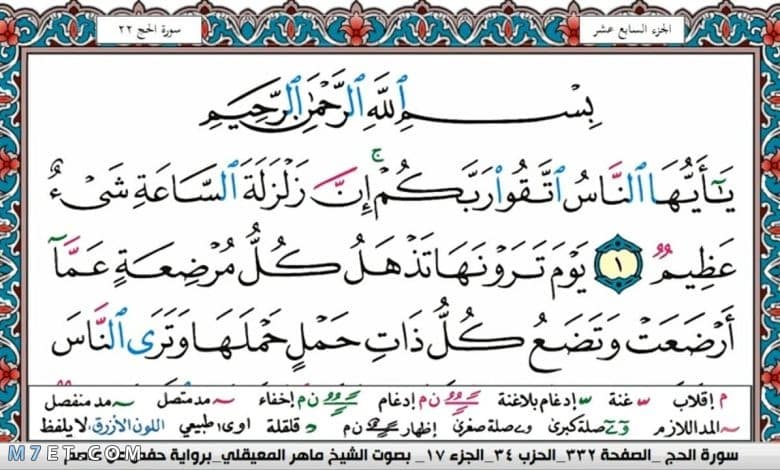 الجزء السابع عشر
سورة الحج ٢٢
بِسْمِ ٱللَّهِ ٱلرَّحْمَٰنِ ٱلرَّحِيمِ
يَٰٓأَيُّهَا ٱلنَّاسُ ٱتَّقُوا۟ رَبَّكُمْ ۚ إِنَّ زَلْزَلَةَ ٱلسَّاعَةِ شَىْءٌ
عَظِيمٌ ١ يَوْمَ تَرَوْنَهَا تَذْهَلُ كُلُّ مُرْضِعَةٍ عَمَّآ
أَرْضَعَتْ وَتَضَعُ كُلُّ ذَاتِ حَمْلٍ حَمْلَهَا وَتَرَى ٱلنَّاسَ
م إقلاب غنة إدغام بلاغنة ن م إدغام ن م إخفاء مد متصل مد منفصل
المد اللازم صلة كبرى صلة صغرى إظهار ن م قلقلة اوى طبيعي اللون الأزرق، لا يلفظ
سورة الحج _الصفحة ٣٣٢_الحزب ٣٤_الجزء ١٧_ بصوت الشيخ ماهر المعيقلي_برواية حفص عن عاصم
M7ET.COM